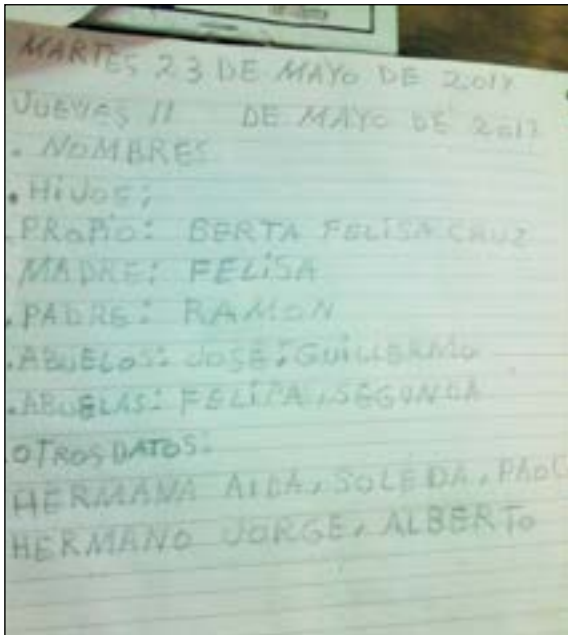 MARTES 23 DE MAYO DE 2017
JUEVES 11 DE MAYO DE 2017
. NOMBRES
. HIJOS;
. PROPIO: BERTA FELISA CRUZ
MADRE: FELISA
. PADRE: RAMON
. ABUELOS: JOSE; GUILLERMO
. ABUELAS: FELIPA, SEGUNDA
OTROS DATOS:
HERMANA AIDA, SOLEDA,
HERMANO JORGE, ALBERTO